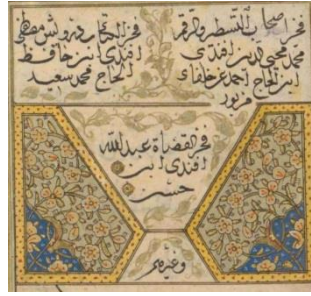 فخر اصحاب التسطر والرقم
محمد محيي الدين افندى
ابن الحاج احمد عن خلفاء
مزبور
فخر الكتاب درويش مصطفى
افندى ابن حافظ
الحاج محمد سعيد
فخر القضاة عبد الله
افندى ابن
حسن
وغيرهم